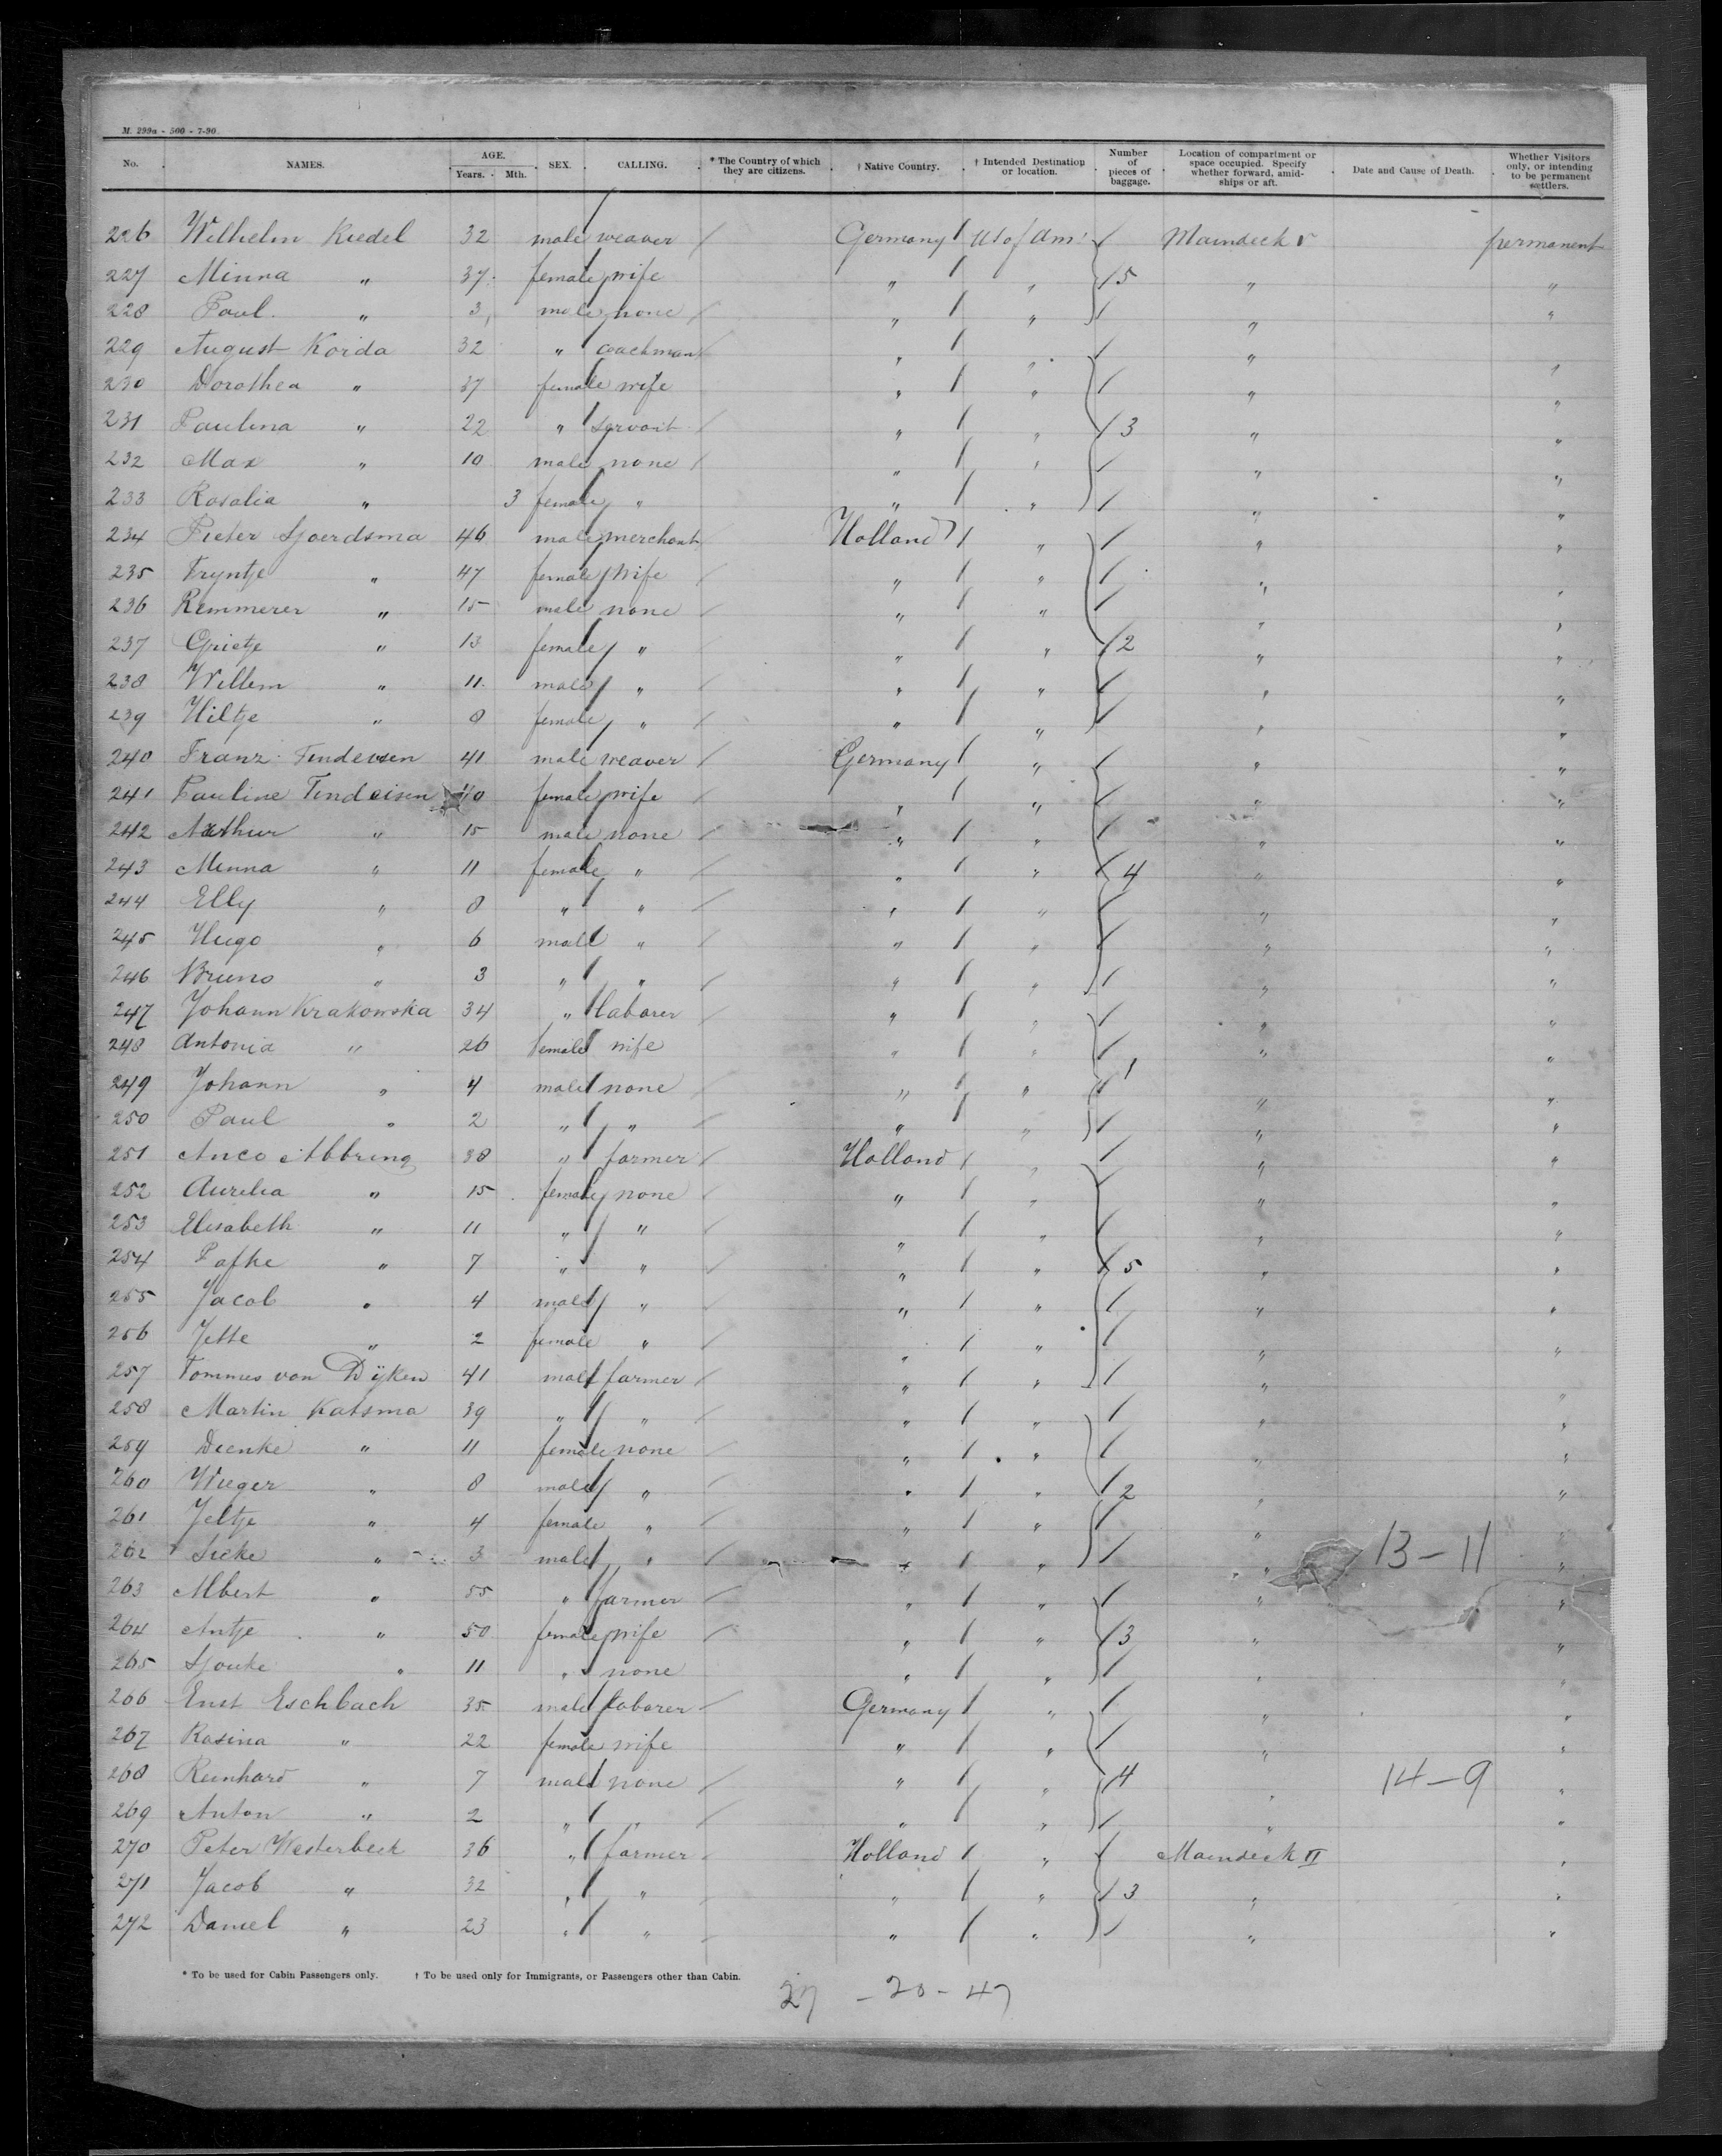 M. 299a - 500 - 7-90.
No. NAMES. AGE. Years. Mth. SEX. CALLING. * The Country of which they are citizens. † Native Country. † Intended Destination or location. Number of pieces of baggage. Location of compartment or space occupied. Specify whether forward, amidships or aft. Date and Cause of Death. Whether Visitors only, or intending to be permanent settlers.
226 Wilhelm Riedel 32 male weaver Germany US of Am. Maindeck permanent
227 Minna " 37 female wife " " 5 " "
228 Paul " 3 male none " " " "
229 August Korda 32 " coachman " " " "
230 Dorothea " 37 female wife " " " "
231 Paulina " 22 " servant " " 3 " "
232 Max " 10 male none " " " "
233 Rosalia " 3 female " " " " "
234 Pieter Sjoerdsma 46 male merchant Holland " " "
235 Tryntje " 47 female wife " " " "
236 Remmerer " 15 male none " " " "
237 Grietje " 13 female " " " 2 " "
238 Willem " 11 male " " " " "
239 Hiltje " 8 female " " " " "
240 Franz Findeisen 41 male weaver Germany " " "
241 Pauline Findeisen 40 female wife " " " "
242 Arthur " 15 male none " " " "
243 Minna " 11 female " " " 4 " "
244 Elly " 8 " " " " " "
245 Hugo " 6 male " " " " "
246 Bruno " 3 " " " " " "
247 Johann Krakowska 34 " laborer " " " "
248 Antonia " 26 female wife " " " "
249 Johann " 4 male none " " 1 " "
250 Paul " 2 " " " " " "
251 Anco Abbring 38 " farmer Holland " " "
252 Aurelia " 15 female none " " " "
253 Elisabeth " 11 " " " " " "
254 Pafke " 7 " " " " 5 " "
255 Jacob " 4 male " " " " "
256 Jette " 2 female " " " " "
257 Tommes von Dÿken 41 male farmer " " " "
258 Martin Katsma 39 " " " " " "
259 Dienke " 11 female none " " " "
260 Wieger " 8 male " " " 2 " "
261 Jeltje " 4 female " " " " "
262 Sieke " 3 male " " " " 13 - 11 "
263 Albert " 55 " farmer " " " "
264 Antje " 50 female wife " " 3 " "
265 Sjouke " 11 " none " " " "
266 Ernst Eschbach 35 male laborer Germany " " "
267 Rosina " 22 female wife " " " "
268 Reinhard " 7 male none " " 4 " 14 - 9 "
269 Anton " 2 " " " " " "
270 Peter Westerbeek 36 " farmer Holland " Maindeck II "
271 Jacob " 32 " " " " 3 " "
272 Daniel " 23 " " " " " "
* To be used for Cabin Passengers only. † To be used only for Immigrants, or Passengers other than Cabin.
27 - 20 - 47